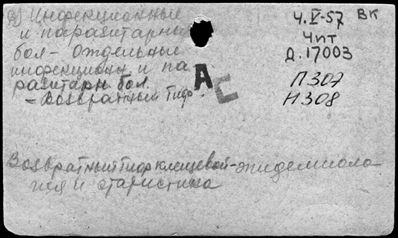 Инфекционные
и паразитарны
бол- Отдельные
инфекционн и па
разитарн бол.
- Возвратный Тиф.
4.V-57 ВК
Чит
Д.17003
П307
Н308
АС
Возвратный Тиф клещевой - эпидемиоло
гия и статистика